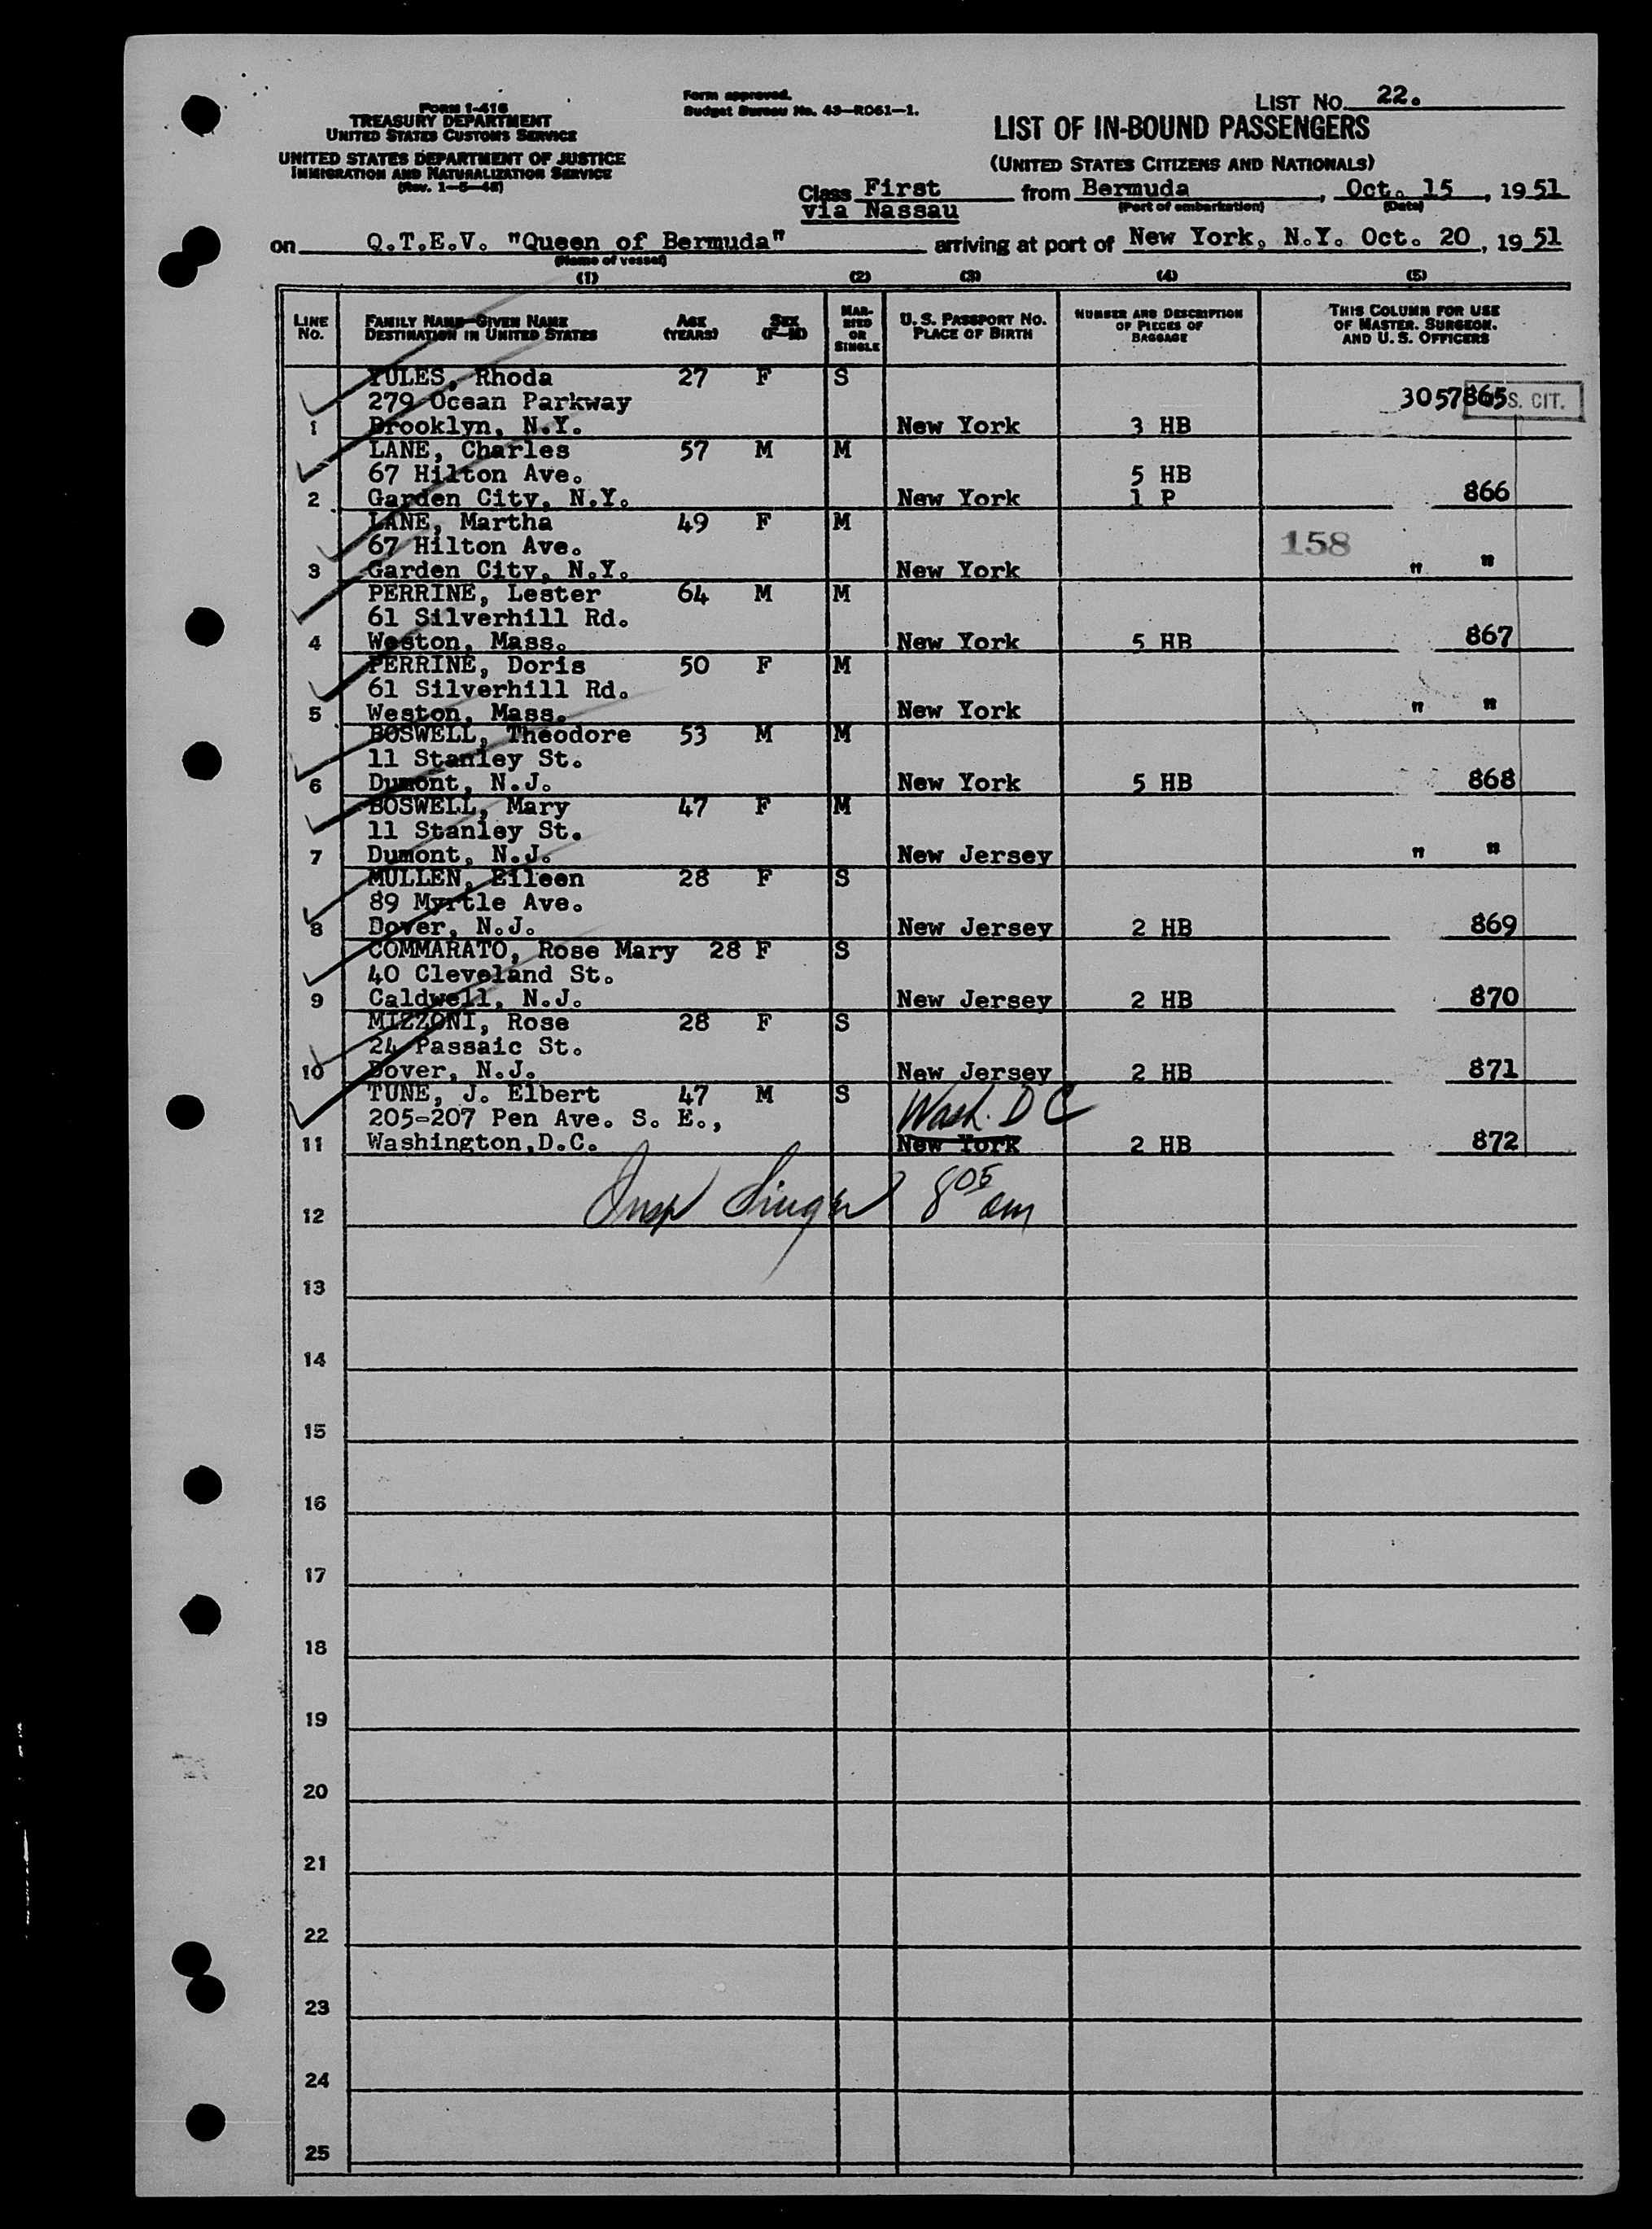 LIST NO. 22.
FORM I-416
TREASURY DEPARTMENT
UNITED STATES CUSTOMS SERVICE
UNITED STATES DEPARTMENT OF JUSTICE
IMMIGRATION AND NATURALIZATION SERVICE
Form approved.
Budget Bureau No. 43—R061—1.
LIST OF IN-BOUND PASSENGERS
(UNITED STATES CITIZENS AND NATIONALS)
Class First from Bermuda, Oct. 15, 1951
via Nassau (Port of embarkation) (Date)
on Q.T.E.V. "Queen of Bermuda" arriving at port of New York, N.Y. Oct. 20, 1951
(Name of vessel)
(1) (2) (3) (4) (5)
LINE No. FAMILY NAME—GIVEN NAME DESTINATION IN UNITED STATES AGE (YEARS) SEX (F—M) MARRIED OR SINGLE U. S. PASSPORT NO. PLACE OF BIRTH NUMBER AND DESCRIPTION OF PIECES OF BAGGAGE THIS COLUMN FOR USE OF MASTER, SURGEON, AND U. S. OFFICERS
YULES, Rhoda 27 F S
279 Ocean Parkway 3057865 S. CIT.
1 Brooklyn, N.Y. New York 3 HB
LANE, Charles 57 M M
67 Hilton Ave. 5 HB
2 Garden City, N.Y. New York 1 P 866
LANE, Martha 49 F M
67 Hilton Ave. 158
3 Garden City, N.Y. New York " "
PERRINE, Lester 64 M M
61 Silverhill Rd.
4 Weston, Mass. New York 5 HB 867
PERRINE, Doris 50 F M
61 Silverhill Rd.
5 Weston, Mass. New York " "
BOSWELL, Theodore 53 M M
11 Stanley St.
6 Dumont, N.J. New York 5 HB 868
BOSWELL, Mary 47 F M
11 Stanley St.
7 Dumont, N.J. New Jersey " "
MULLEN, Eileen 28 F S
89 Myrtle Ave.
8 Dover, N.J. New Jersey 2 HB 869
COMMARATO, Rose Mary 28 F S
40 Cleveland St.
9 Caldwell, N.J. New Jersey 2 HB 870
MIZZONI, Rose 28 F S
24 Passaic St.
10 Dover, N.J. New Jersey 2 HB 871
TUNE, J. Elbert 47 M S Wash. D C
205-207 Pen Ave. S. E.,
11 Washington, D.C. New York 2 HB 872
12 Insp Singer 8 05 am
13
14
15
16
17
18
19
20
21
22
23
24
25